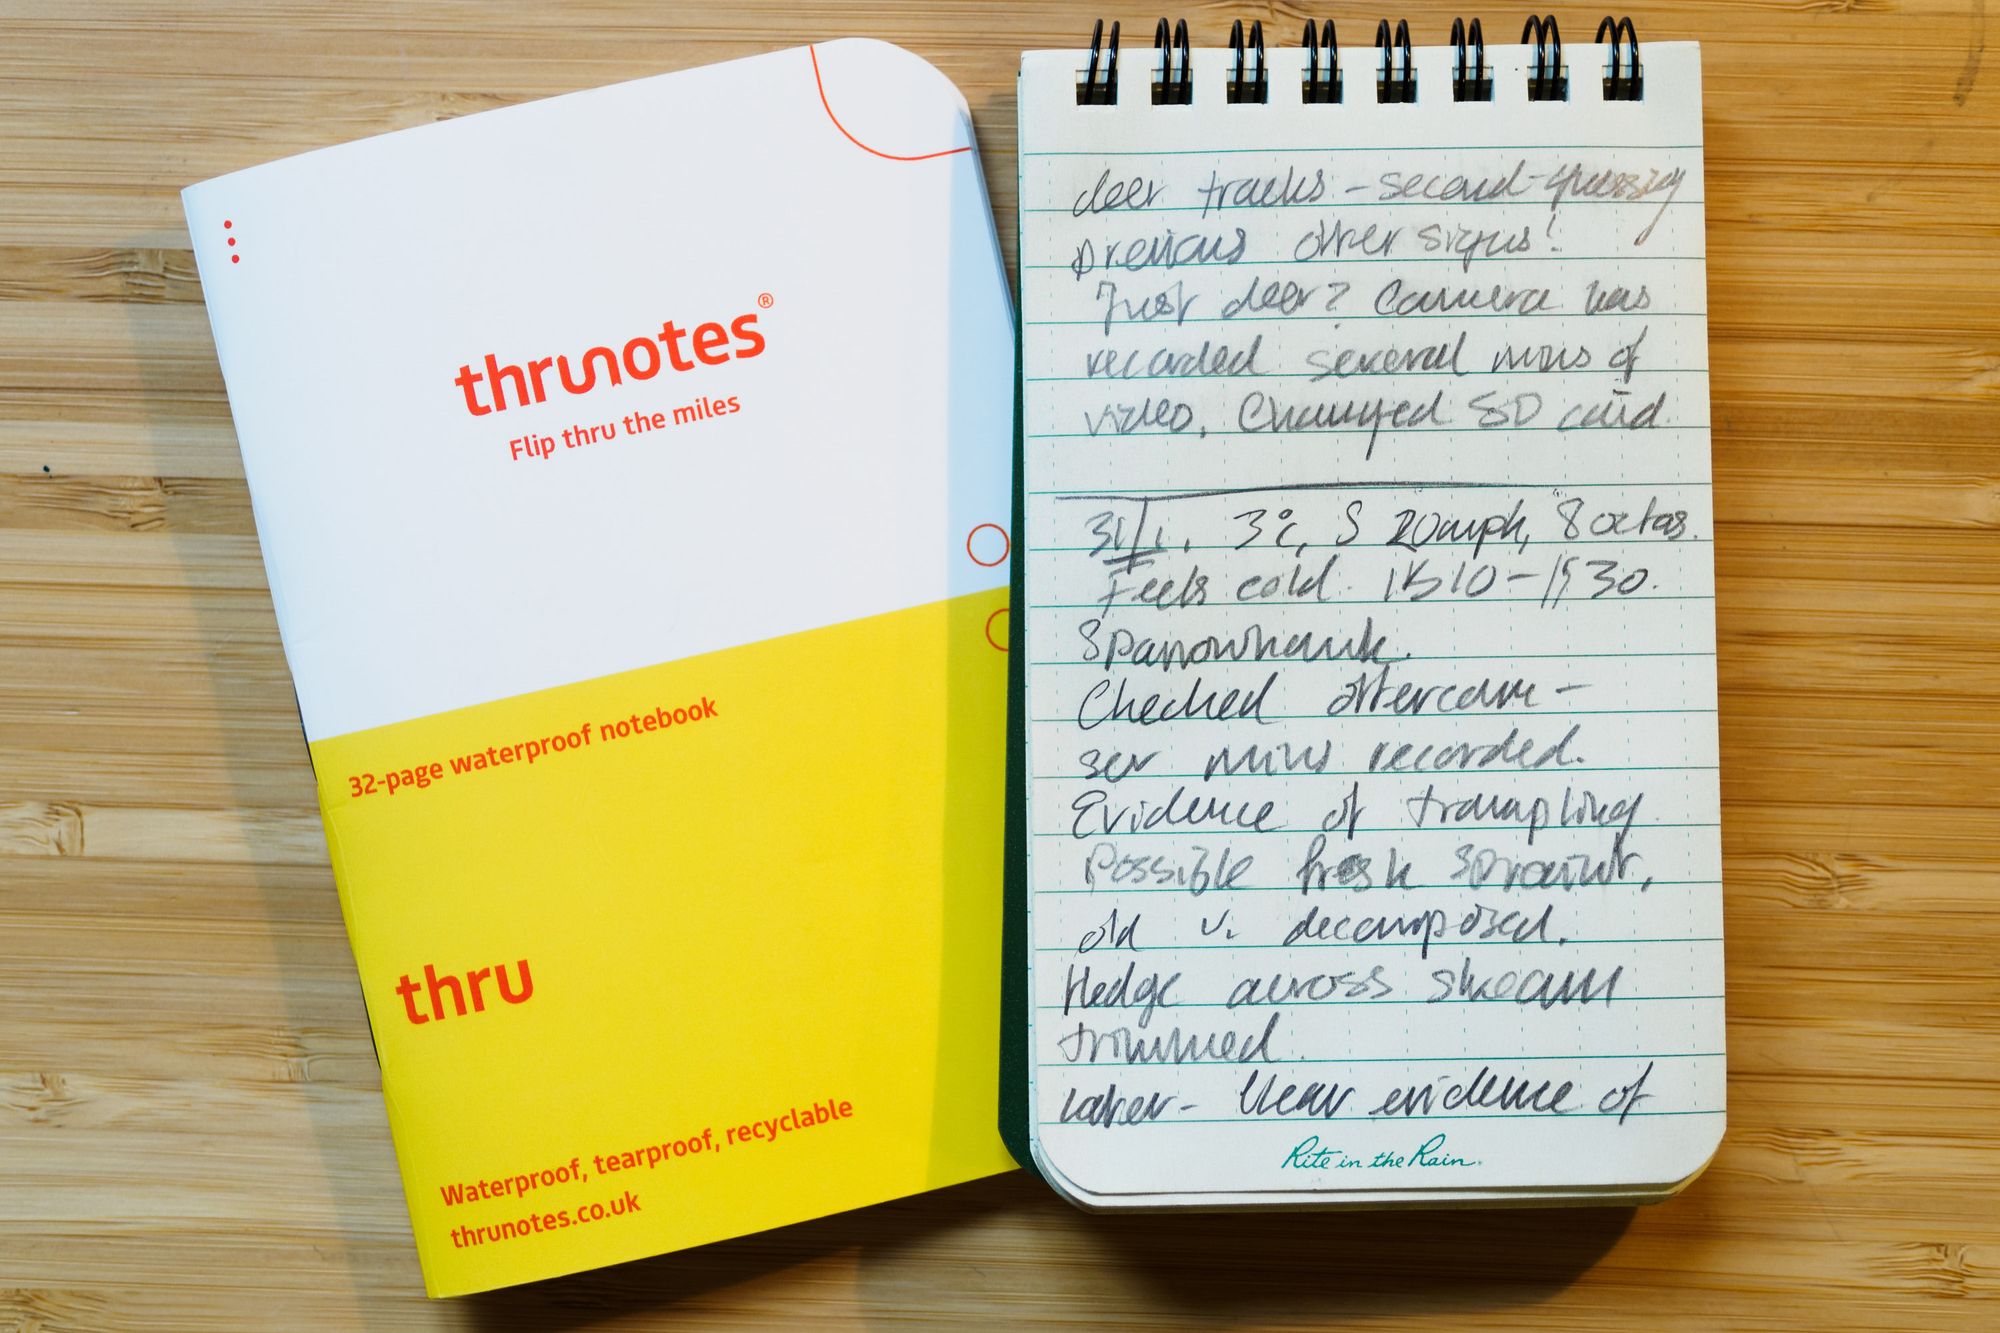 thrunotes®
Flip thru the miles
32-page waterproof notebook
thru
Waterproof, tearproof, recyclable
thrunotes.co.uk
deer tracks – second-guessing
previous otter signs!
Just deer? Camera has
recorded several mins of
video. Changed SD card
31/1. 3°c, S 20mph, 8 octas.
Feels cold. 1530.
Sparrowhawk.
Checked ottercam –
sev mins recorded.
Evidence of trampling.
Possible fresh spraint,
old v. decomposed.
Hedge across stream
trimmed.
Later – clear evidence of
Rite in the Rain.